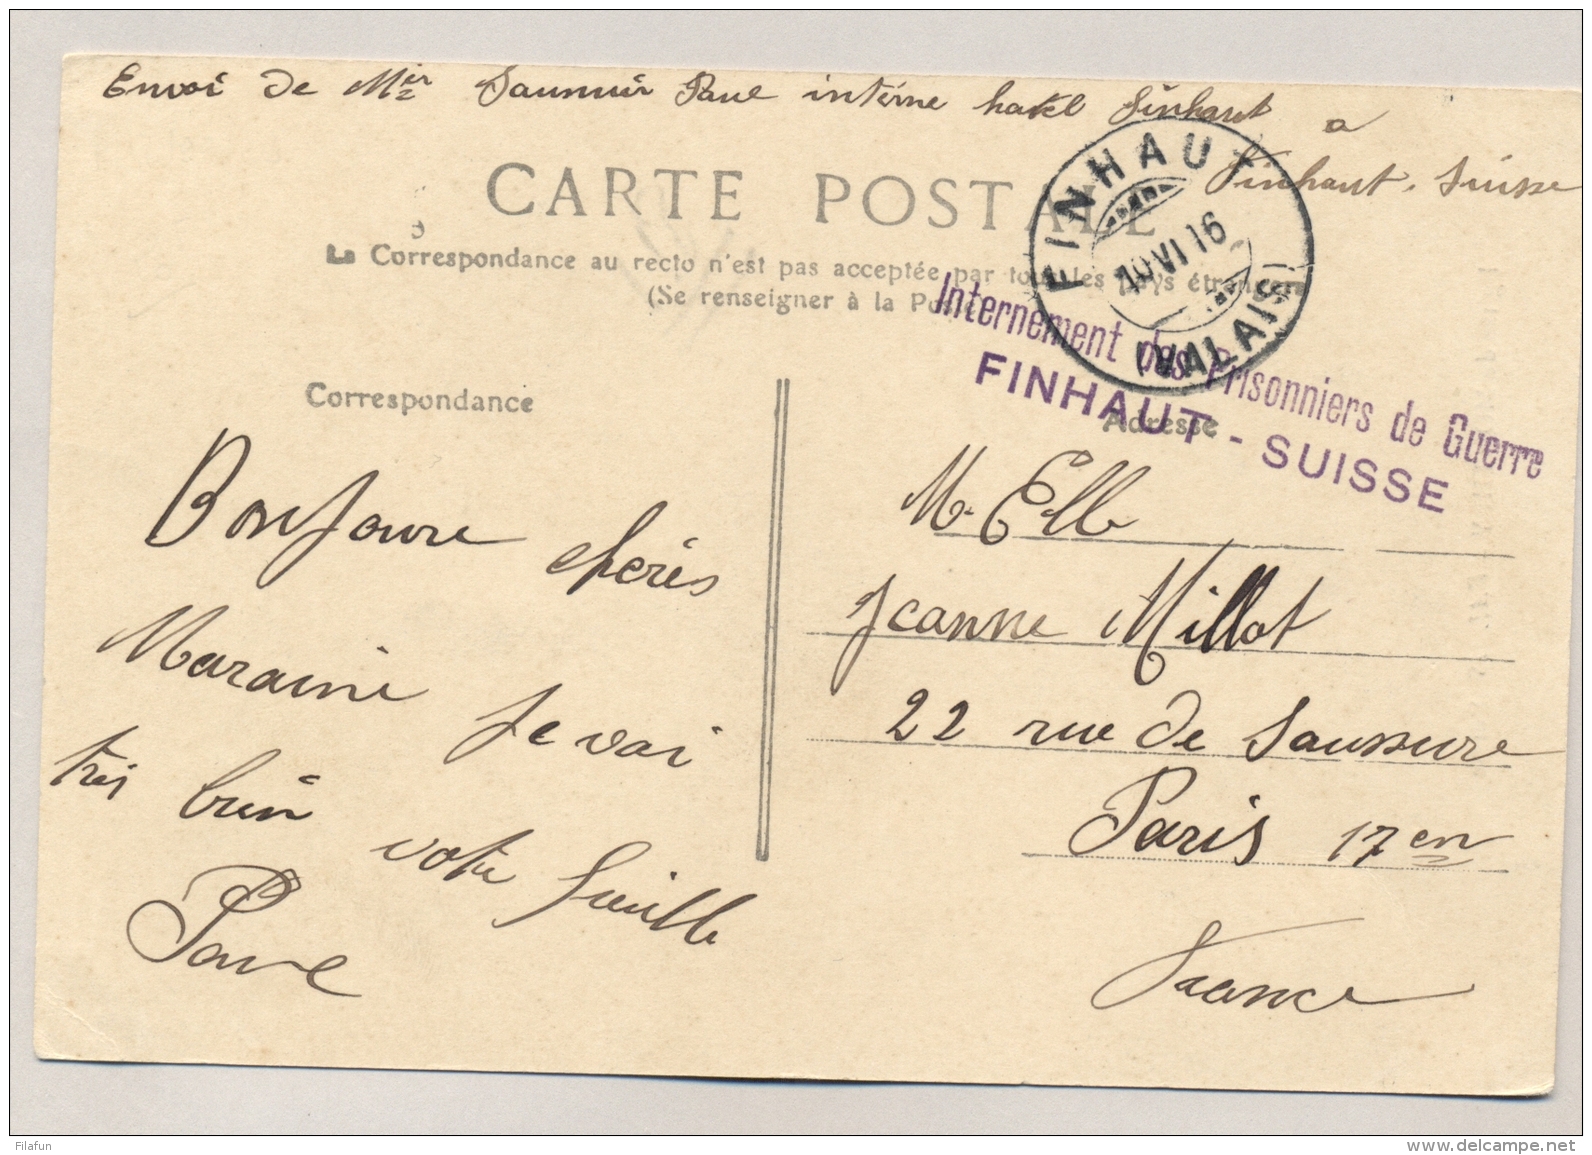 Envoi de Mir Saunier Paul interne hotel Finhaut a
Finhaut. Suisse
CARTE POSTALE
La Correspondance au recto n'est pas acceptée par tous les pays étrangers
(Se renseigner à la Poste)
FINHAUT
10 VI 16
(VALAIS)
Internement des Prisonniers de Guerre
FINHAUT - SUISSE
Correspondance
Bonjoure cheris
Maraine Je vai
tres bien votre
Paul
Adresse
M. Elle
Jeanne Millot
22 rue de Saussure
Paris 17 em
France
Filafun
www.delcampe.net